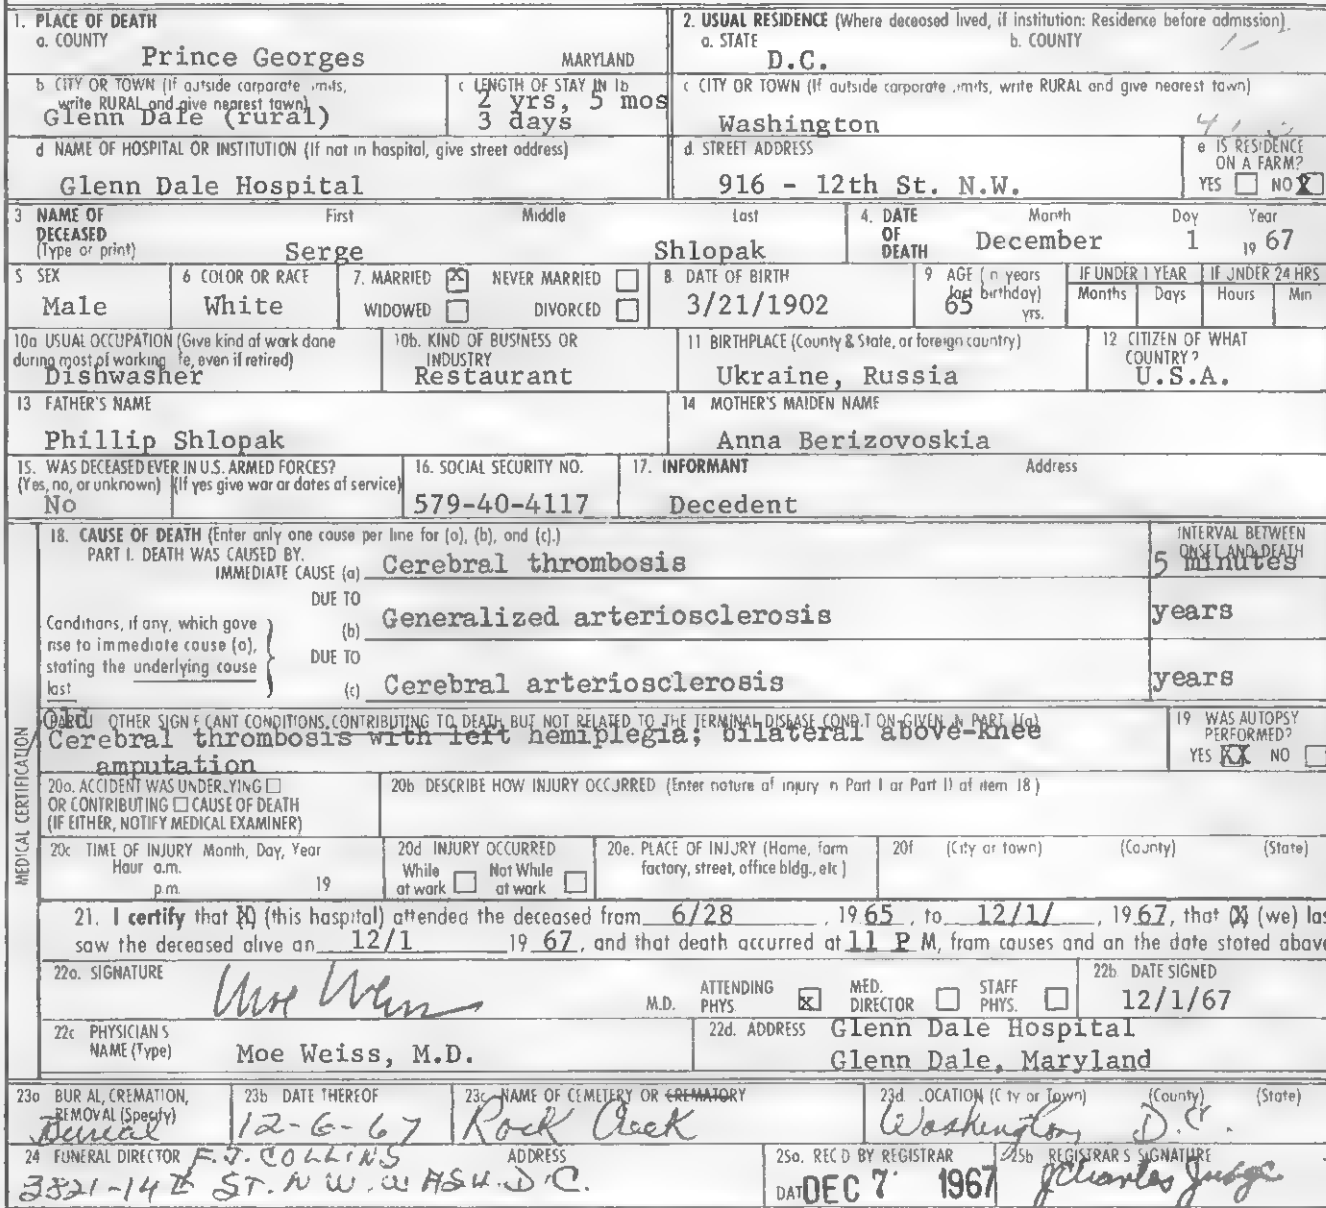 1. PLACE OF DEATH
a. COUNTY
Prince Georges MARYLAND
2. USUAL RESIDENCE (Where deceased lived, if institution: Residence before admission).
a. STATE b. COUNTY
D.C.
b CITY OR TOWN (If outside corporate limits, write RURAL and give nearest town)
Glenn Dale (rural)
c LENGTH OF STAY IN 1b
2 yrs, 5 mos
3 days
c CITY OR TOWN (If outside corporate limits, write RURAL and give nearest town)
Washington
d NAME OF HOSPITAL OR INSTITUTION (If not in hospital, give street address)
Glenn Dale Hospital
d. STREET ADDRESS
916 - 12th St. N.W.
e IS RESIDENCE ON A FARM?
YES NO X
3 NAME OF DECEASED (Type or print)
First Middle Last
Serge Shlopak
4. DATE OF DEATH
Month Day Year
December 1 19 67
5 SEX
Male
6 COLOR OR RACE
White
7. MARRIED X NEVER MARRIED
WIDOWED DIVORCED
8. DATE OF BIRTH
3/21/1902
9 AGE (In years last birthday)
65 yrs.
IF UNDER 1 YEAR
Months Days
IF UNDER 24 HRS
Hours Min
10a USUAL OCCUPATION (Give kind of work done during most of working life, even if retired)
Dishwasher
10b. KIND OF BUSINESS OR INDUSTRY
Restaurant
11 BIRTHPLACE (County & State, or foreign country)
Ukraine, Russia
12 CITIZEN OF WHAT COUNTRY?
U.S.A.
13 FATHER'S NAME
Phillip Shlopak
14 MOTHER'S MAIDEN NAME
Anna Berizovoskia
15. WAS DECEASED EVER IN U.S. ARMED FORCES?
(Yes, no, or unknown) (If yes give war or dates of service)
No
16. SOCIAL SECURITY NO.
579-40-4117
17. INFORMANT Address
Decedent
MEDICAL CERTIFICATION
18. CAUSE OF DEATH (Enter only one cause per line for (a), (b), and (c).)
PART I. DEATH WAS CAUSED BY.
IMMEDIATE CAUSE (a) Cerebral thrombosis
INTERVAL BETWEEN ONSET AND DEATH
5 minutes
Conditions, if any, which gave rise to immediate cause (a), stating the underlying cause last
DUE TO
(b) Generalized arteriosclerosis years
DUE TO
(c) Cerebral arteriosclerosis years
PART II OTHER SIGNIFICANT CONDITIONS CONTRIBUTING TO DEATH BUT NOT RELATED TO THE TERMINAL DISEASE CONDITION GIVEN IN PART I(a)
Old
Cerebral thrombosis with left hemiplegia; bilateral above-knee
amputation
19 WAS AUTOPSY PERFORMED?
YES XX NO
20a. ACCIDENT WAS UNDERLYING
OR CONTRIBUTING CAUSE OF DEATH
(IF EITHER, NOTIFY MEDICAL EXAMINER)
20b DESCRIBE HOW INJURY OCCURRED (Enter nature of injury in Part I or Part II of item 18)
20c TIME OF INJURY Month, Day, Year
Hour a.m.
p.m. 19
20d INJURY OCCURRED
While at work Not While at work
20e. PLACE OF INJURY (Home, farm factory, street, office bldg., etc)
20f (City or town) (County) (State)
21. I certify that (X) (this hospital) attended the deceased from 6/28, 19 65, to 12/1/, 19 67, that (X) (we) las
saw the deceased alive on 12/1 19 67, and that death occurred at 11 P M, from causes and on the date stated above
22a. SIGNATURE
Moe Weiss M.D.
ATTENDING PHYS. X MED. DIRECTOR STAFF PHYS.
22b DATE SIGNED
12/1/67
22c PHYSICIAN'S NAME (Type)
Moe Weiss, M.D.
22d. ADDRESS Glenn Dale Hospital
Glenn Dale, Maryland
23a BURIAL, CREMATION, REMOVAL (Specify)
Burial
23b DATE THEREOF
12-6-67
23c NAME OF CEMETERY OR CREMATORY
Rock Creek
23d. LOCATION (City or Town) (County) (State)
Washington, D.C.
24 FUNERAL DIRECTOR F.J. COLLINS ADDRESS
3821-14th ST. N.W. WASH. D.C.
25a. REC'D BY REGISTRAR
DATE DEC 7 1967
25b REGISTRAR'S SIGNATURE
J Charles Judge